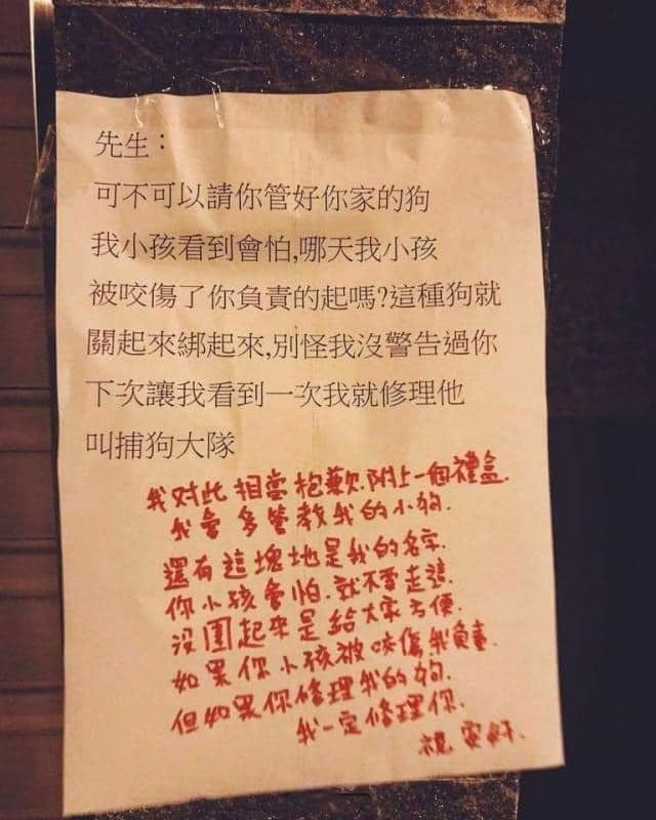 先生：
可不可以請你管好你家的狗
我小孩看到會怕,哪天我小孩
被咬傷了你負責的起嗎?這種狗就
關起來綁起來,別怪我沒警告過你
下次讓我看到一次我就修理他
叫捕狗大隊
我对此相當抱歉.附上一個禮盒.
我會多管教我的小狗.
還有這塊地是我的名字.
你小孩會怕.就不要走這.
沒圍起來是給大家方便.
如果你小孩被咬傷我負責.
但如果你修理我的狗.
我一定修理你.
祝